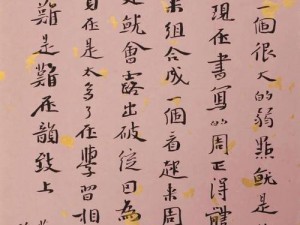 一個很大的弱點就是
現在書寫的周正得體
來組合成一個看起來周
就會露出破綻因為
在是太多了在學習相
難是難在韻致上